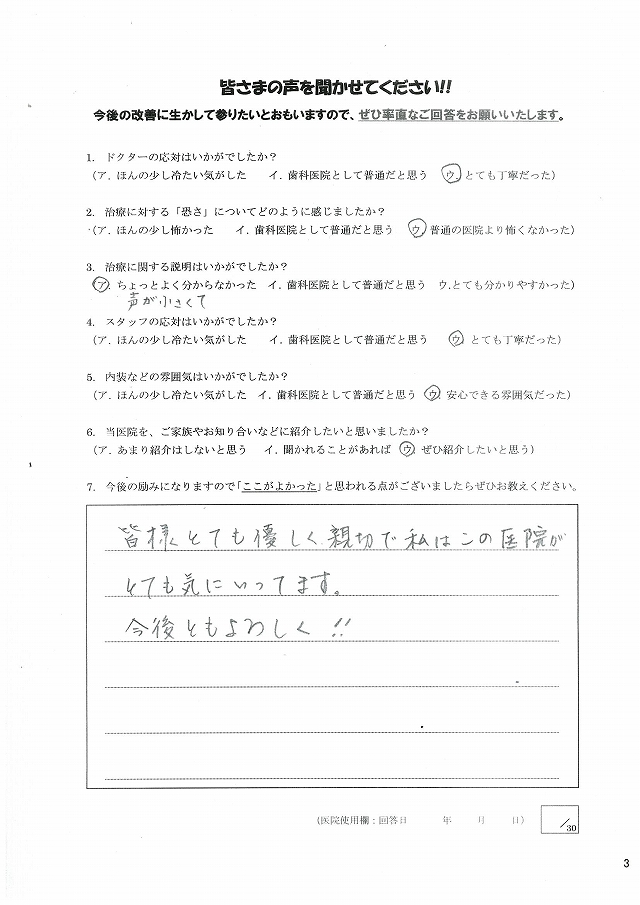 皆さまの声を聞かせてください!!
今後の改善に生かして参りたいとおもいますので、ぜひ率直なご回答をお願いいたします。
1. ドクターの応対はいかがでしたか？
（ア．ほんの少し冷たい気がした　イ．歯科医院として普通だと思う　ウ．とても丁寧だった）
2. 治療に対する「恐さ」についてどのように感じましたか？
（ア．ほんの少し怖かった　イ．歯科医院として普通だと思う　ウ．普通の医院より怖くなかった）
3. 治療に関する説明はいかがでしたか？
（ア．ちょっとよく分からなかった　イ．歯科医院として普通だと思う　ウ．とても分かりやすかった）
声が小さくて
4. スタッフの応対はいかがでしたか？
（ア．ほんの少し冷たい気がした　イ．歯科医院として普通だと思う　ウ．とても丁寧だった）
5. 内装などの雰囲気はいかがでしたか？
（ア．ほんの少し冷たい気がした　イ．歯科医院として普通だと思う　ウ．安心できる雰囲気だった）
6. 当医院を、ご家族やお知り合いなどに紹介したいと思いましたか？
（ア．あまり紹介はしないと思う　イ．聞かれることがあれば　ウ．ぜひ紹介したいと思う）
7. 今後の励みになりますので「ここがよかった」と思われる点がございましたらぜひお教えください。
皆様とても優しく親切で私はこの医院が
とても気にいってます。
今後ともよろしく!!
（医院使用欄：回答日　年　月　日）
/30
3